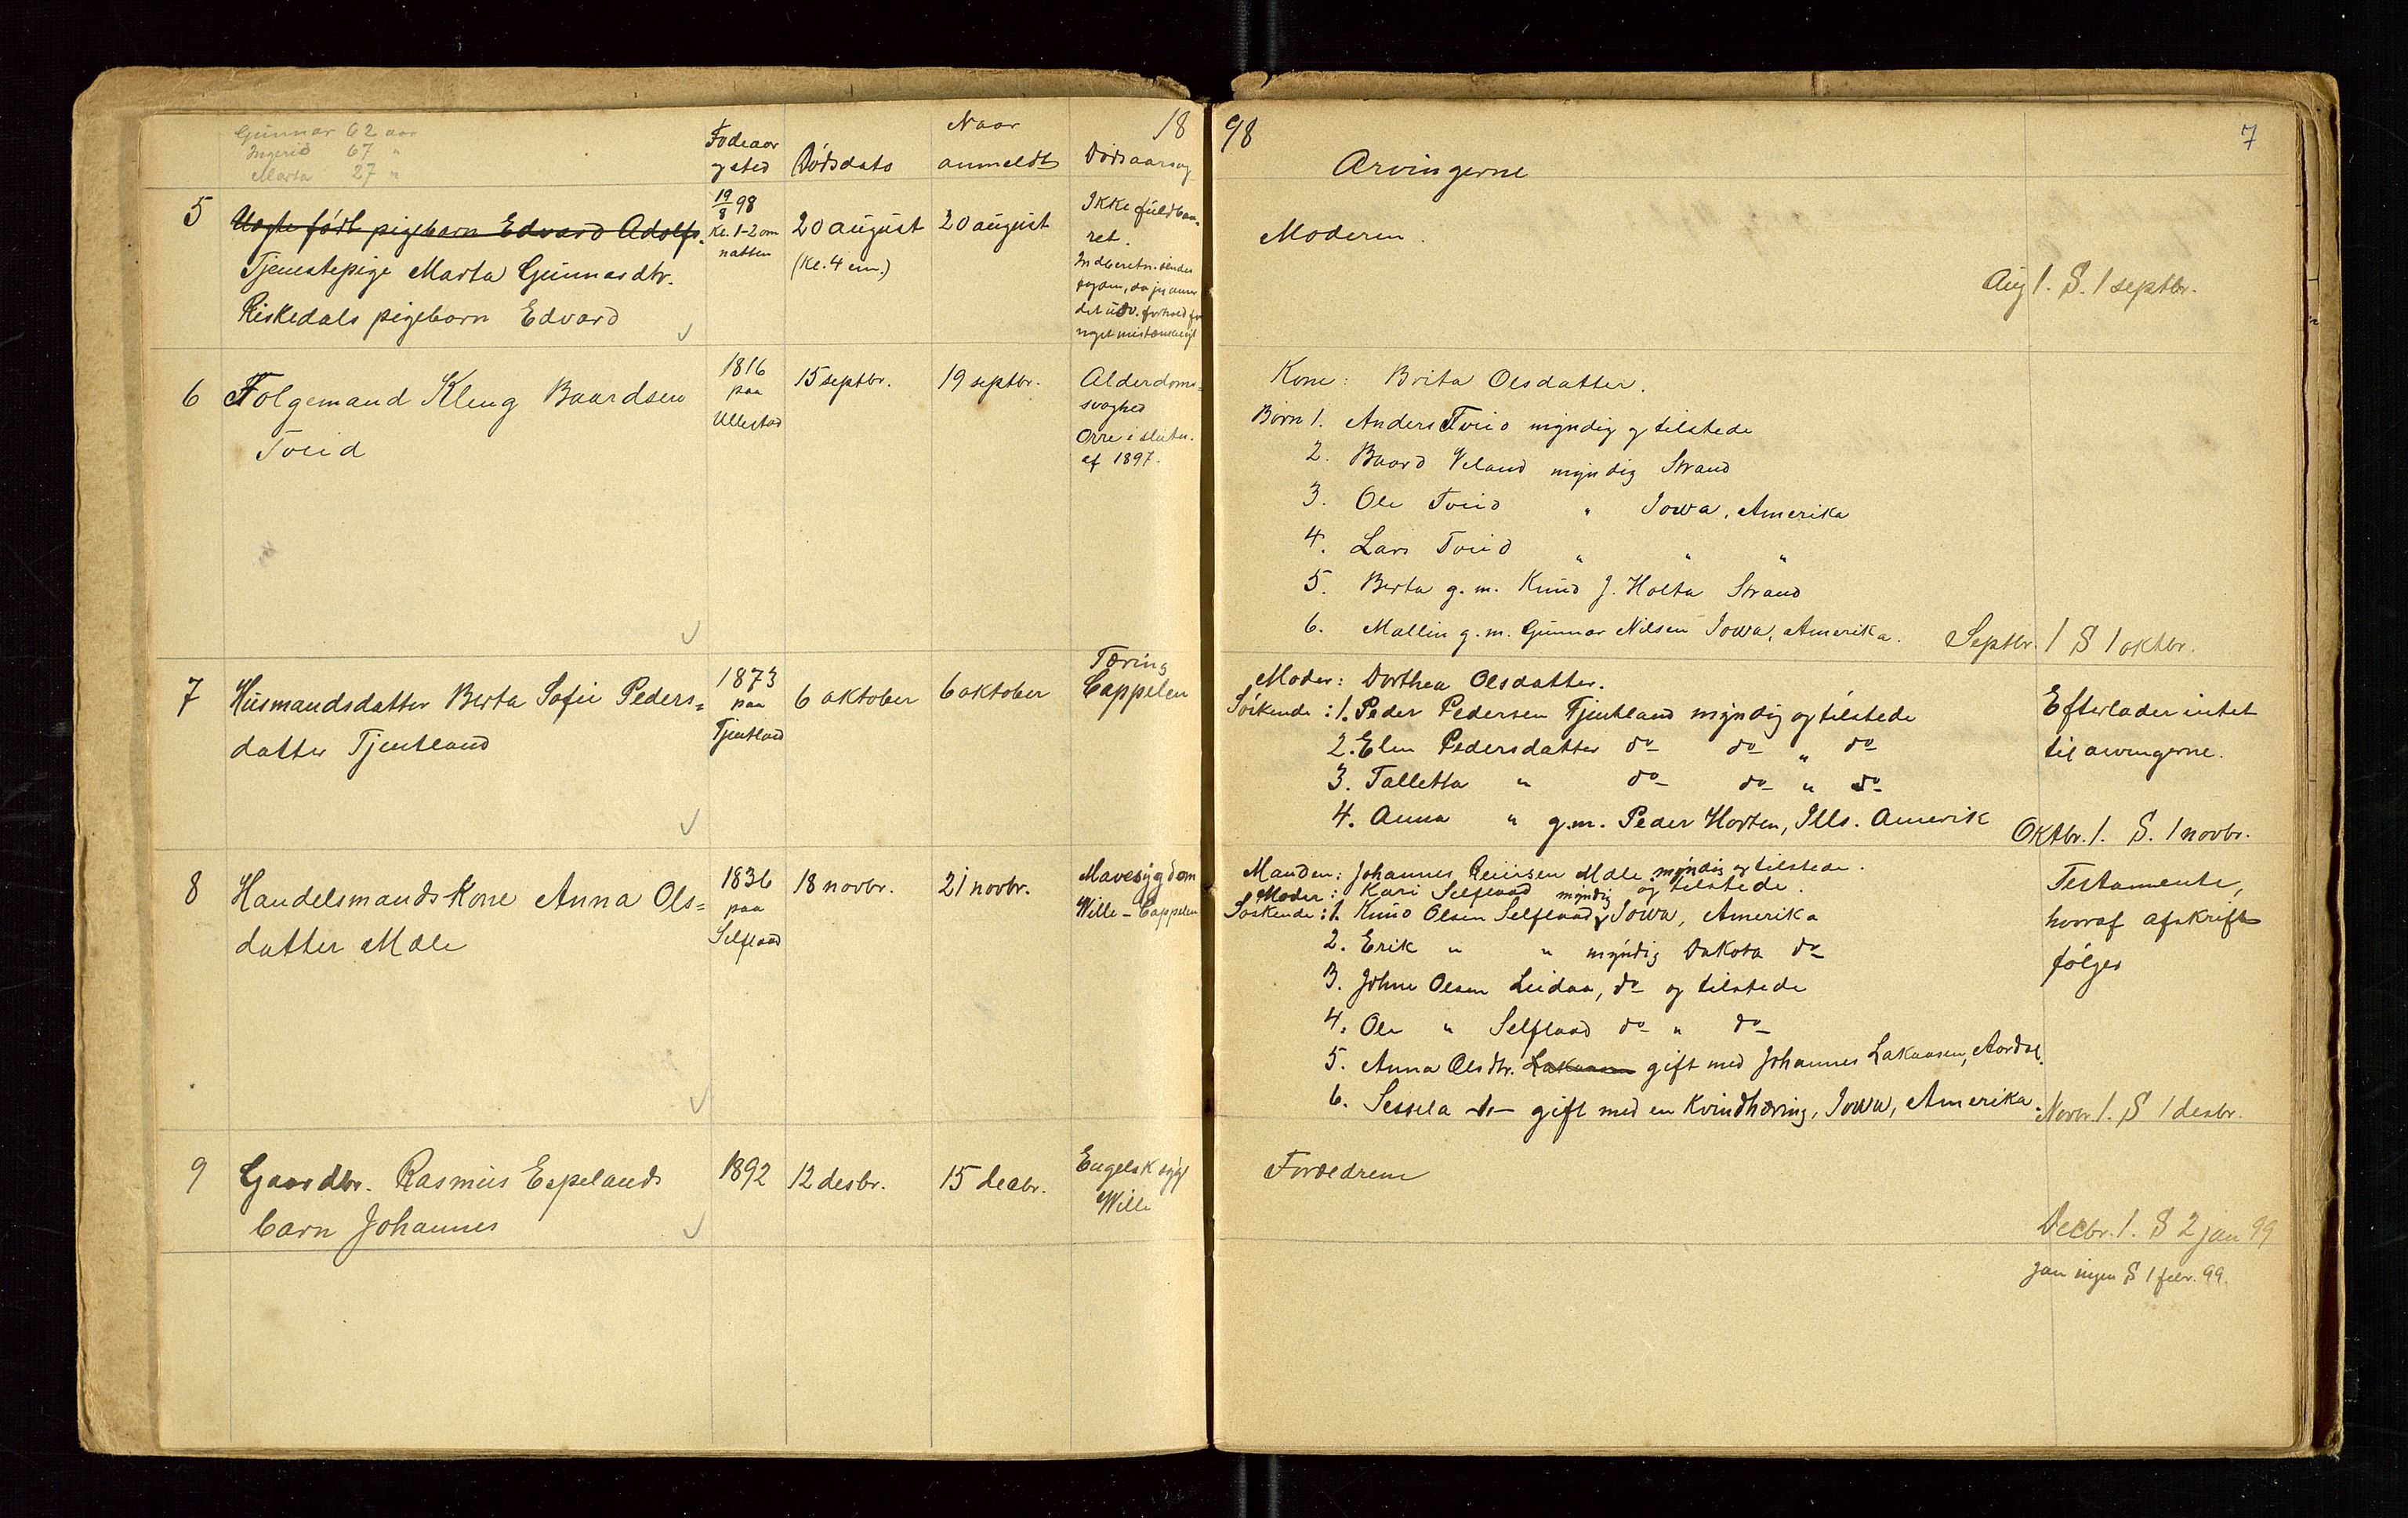 Gunnar 62 aar
Ingerid 67 "
Marta 27 "
Fødeaar og sted
Dødsdato
Naar anmeldt
18
Dødsaarsag
98
Arvingerne
7
5
Uægte født pigebarn Edvard Adolfs.
Tjenestepige Marta Gunnardtr.
Riskedals pigebarn Edvard
19/8 98
Kl. 1-2 om
natten
20 august
(Kl. 4 em.)
20 august
Ikke fuldbaa-
ret.
Moderen.
Aug 1. S. 1 septbr.
6
Folgemand Kleng Baardsen
Tveid
1816
paa
Ullestad
15 septbr.
19 septbr.
Alderdoms-
svaghed
Orre i slutn.
af 1897.
Kone: Brita Olsdatter.
Børn 1. Anders Tveid myndig og tilstede
2. Baard Veland myndig Strand
3. Ole Tveid " Iowa, Amerika
4. Lars Tveid " " "
5. Berta g. m. Knud J. Holta Strand
6. Mallin g. m. Gunnar Nilsen Iowa, Amerika.
Septbr. 1 S 1 oktbr.
7
Husmandsdatter Berta Sofie Peders=
datter Tjentland
1873
paa
Tjentland
6 oktober
6 oktober
Tæring
Cappelen
Moder: Dorthea Olsdatter.
Søskende: 1. Peder Pedersen Tjentland myndig og tilstede
2. Elen Pedersdatter do do " do
3. Talletta " do do " do
4. Anna " g.m. Peder Horten, Ills. Amerik
Efterlader intet
til arvingerne.
Oktbr. 1. S. 1 novbr.
8
Handelsmands-Kone Anna Ols=
datter Mæle
1836
paa
Selfland
18 novbr.
21 novbr.
Mavesygdom
Wille - Cappelen
Manden: Johannes Reiersen Mæle myndig og tilstede.
Moder: Kari Selfland myndig og tilstede.
Søskende: 1. Knud Olsen Selfland, Iowa, Amerika
2. Erik " " myndig Dakota do
3. Johne Olsen Leidaa, do og tilstede
4. Ole " Selfland do " do
5. Anna Olsdtr. Lakaasen gift med Johannes Lakaasen, Aardal.
6. Sessela do gift med en Kvindhæring, Iowa, Amerika.
Testamente,
hvoraf afskrift
følger
Novbr 1. S 1 desbr.
9
Gaardbr. Rasmus Espelands
barn Johannes
1892
12 desbr.
15 decbr.
Engelsk syge
Wille
Forældrene
Decbr. 1. S 2 jan 99
Jan ingen S 1 febr. 99.